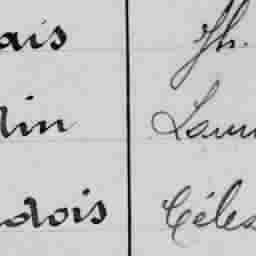 ais Jh.
lin Laur
dois Céles